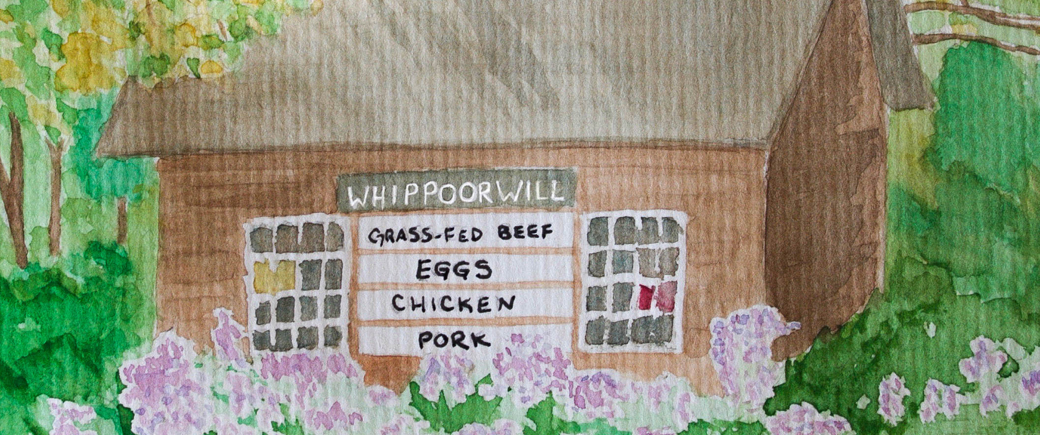 WHIPPOORWILL
GRASS-FED BEEF
EGGS
CHICKEN
PORK